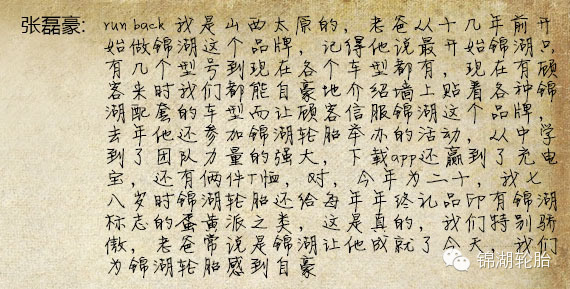 张磊豪: run back 我是山西太原的，老爸从十几年前开
始做锦湖这个品牌，记得他说最开始锦湖只
有几个型号到现在各个车型都有，现在有顾
客来时我们都能自豪地介绍墙上贴着各种锦
湖配套的车型而让顾客信服锦湖这个品牌，
去年他还参加锦湖轮胎举办的活动，从中学
到了团队力量的强大，下载app还赢到了充电
宝，还有俩件T恤，对，今年为二十，我七
八岁时锦湖轮胎还给每年年终礼品印有锦湖
标志的蛋黄派之类，这是真的，我们特别骄
傲，老爸常说是锦湖让他成就了今天，我们
为锦湖轮胎感到自豪
锦湖轮胎